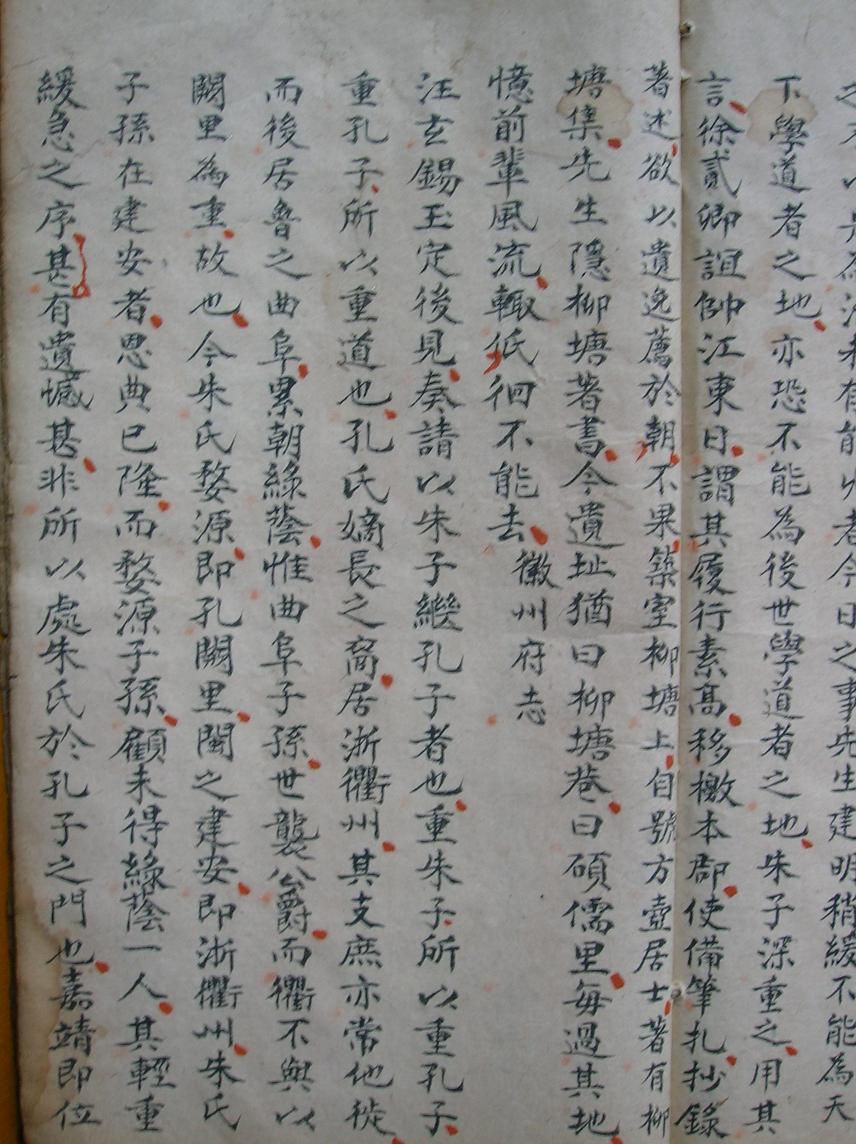 之矣以是為法未有能少者今日之事先生建明稍緩不能為天
下學道者之地亦恐不能為後世學道者之地朱子深重之用其
言徐貳卿誼帥江東日謂其履行素高移檄本郡使備筆扎抄錄
著述欲以遺逸薦於朝不果築室柳塘上自號方壺居士著有柳
塘集先生隱柳塘著書今遺址猶曰柳塘巷曰碩儒里每過其地
憶前輩風流輙低徊不能去 徽州府志
汪玄錫玉定後見奏請以朱子繼孔子者也重朱子所以重孔子
重孔子所以重道也孔氏嫡長之裔居浙衢州其支庶亦常他徙
而後居魯之曲阜累朝綠蔭惟曲阜子孫世襲公爵而衢不與以
闕里為重故也今朱氏婺源即孔闕里閩之建安即浙衢州朱氏
子孫在建安者恩典已隆而婺源子孫顧未得綠蔭一人其輕重
緩急之序甚有遺憾甚非所以處朱氏於孔子之門也嘉靖即位